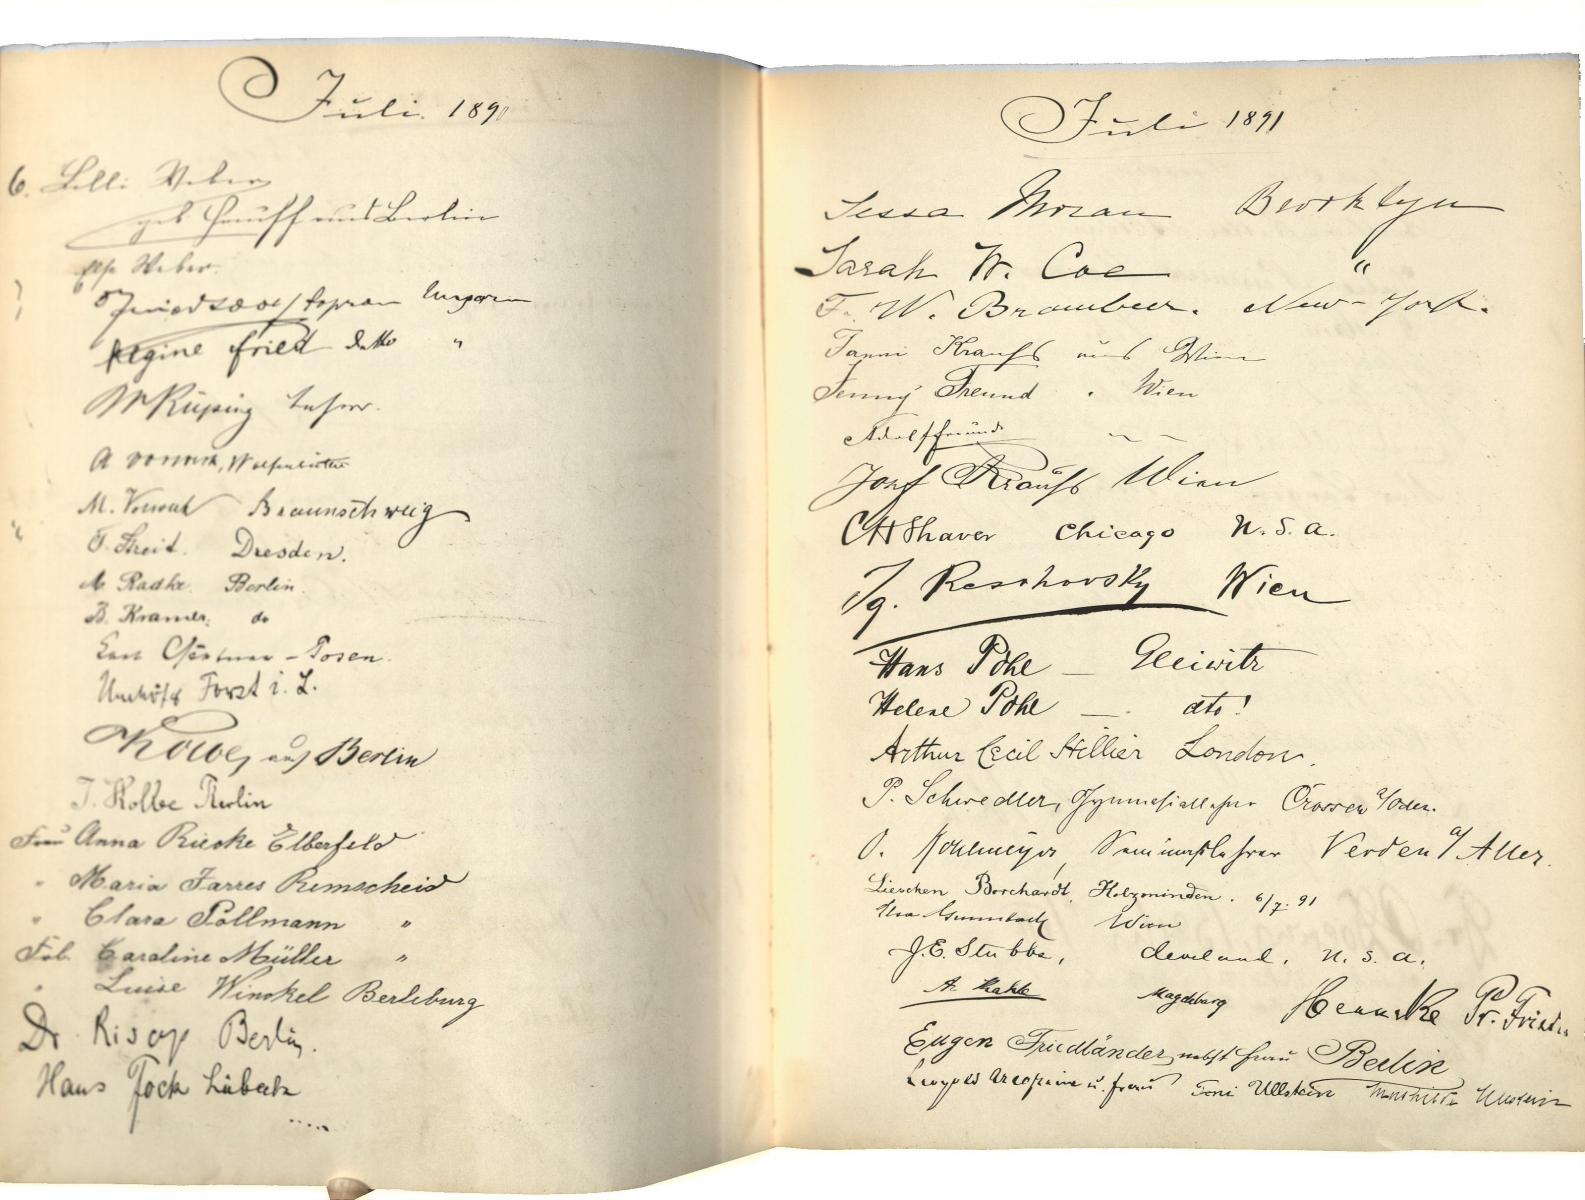 Juli 1891
6. Lilli Weber
geb Berlin
Else Weber.
Sopran Ungarn
Regine Fried detto "
W Rüping
A Vonnoh, Wolfenbüttel
M. Braunschweig
F. Streit. Dresden.
M Radke. Berlin.
B. Kramer. do
Posen.
Forst i. L.
aus Berlin
J. Kolbe Berlin
Frau Anna Rieske Elberfeld
" Maria Farres Remscheid
" Clara Pollmann "
Frl. Caroline Müller "
" Luise Winckel Berleburg
Dr. Risop Berlin.
Hans Fock Lübeck
Juli 1891
Tessa Moran Brooklyn
Sarah W. Coe "
F. W. Brambeer. New-York.
Fanni Krauss aus Wien
Jenny Freund " Wien
Adolf Freund
Josef Krauss Wien
C H Shaver Chicago U.S.a.
Ig. Reschovsky Wien
Hans Pohl — Gleiwitz
Helene Pohl — dto!
Arthur Cecil Hillier London.
P. Schwedler, Gymnasiallehrer Crossen a/Oder.
O. Kohlmeyer, Seminarlehrer Verden a/Aller.
Lieschen Borchardt. Holzminden. 6/7. 91
Wien
J.E. Stubbs, Cleveland, U.S.a.
A. Kahle Magdeburg
Eugen Friedländer nebst Frau Berlin
Leopold u. Frau Toni Ullstein Mathilde Ullstein